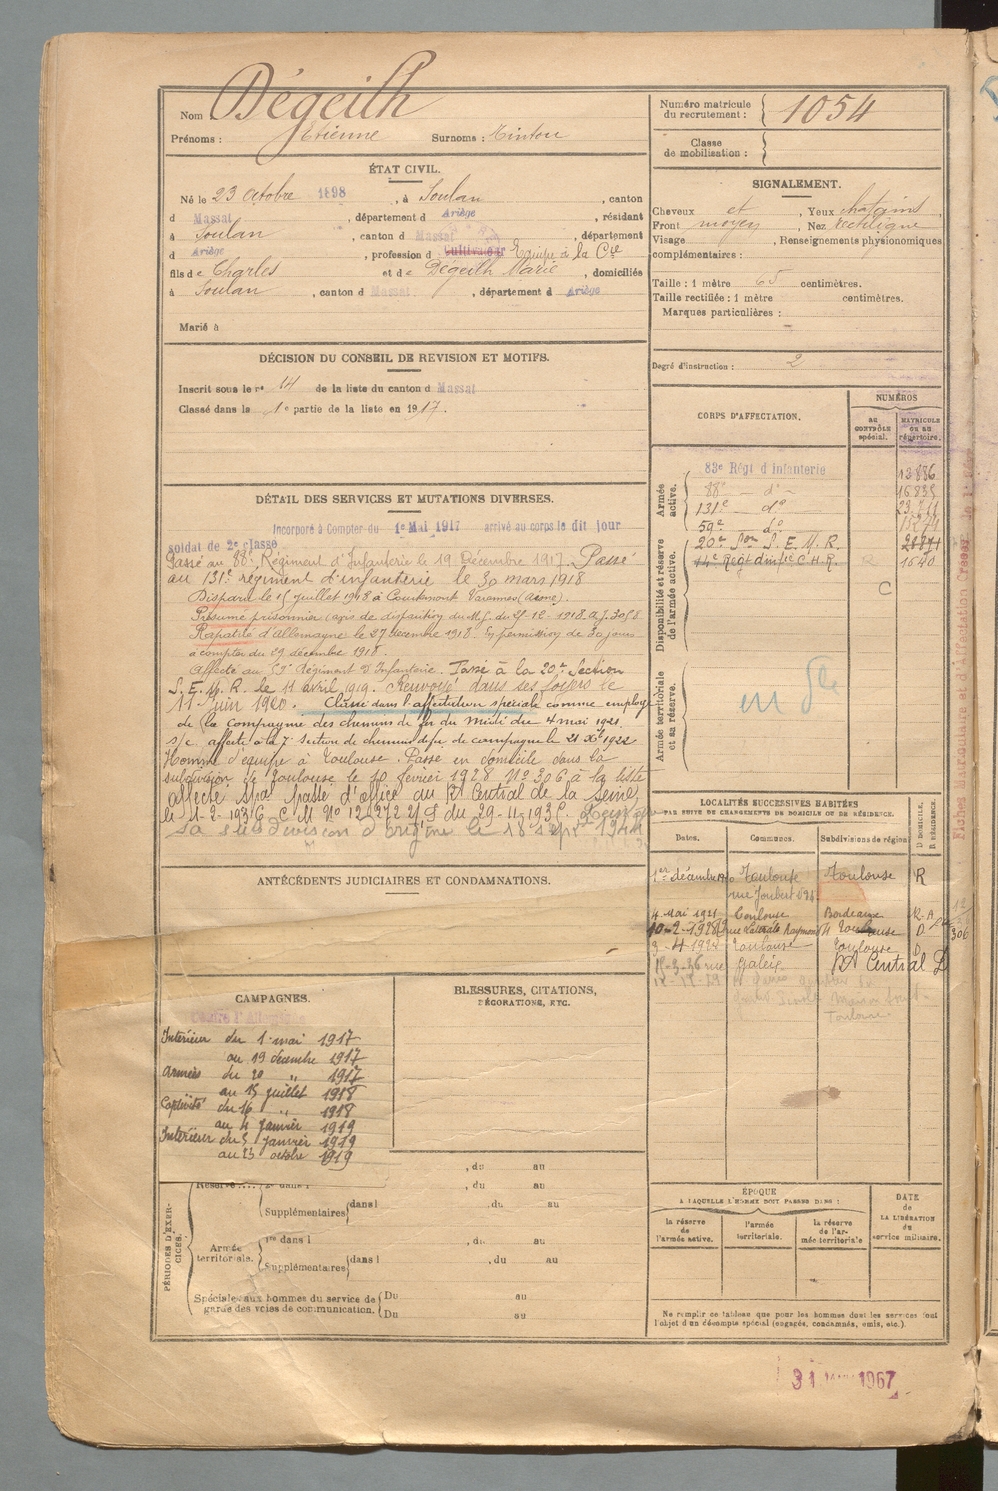 Nom Dégeilh
Prénoms : Etienne Surnoms : Tintou
ÉTAT CIVIL.
Né le 23 octobre 1898, à Soulan, canton
d Massat, département d Ariège, résidant
à Soulan, canton d Massat, département
d Ariège, profession d Cultivateur Equipe à la Cie
fils de Charles et de Dégeilh Marie, domiciliés
à Soulan, canton d Massat, département d Ariège
Marié à
DÉCISION DU CONSEIL DE REVISION ET MOTIFS.
Inscrit sous le n° 14 de la liste du canton d Massat
Classé dans la 1e partie de la liste en 1917.
DÉTAIL DES SERVICES ET MUTATIONS DIVERSES.
Incorporé à Compter du 1e Mai 1917 arrivé au corps le dit jour
soldat de 2e classe
Passé au 88e Régiment d'Infanterie le 19 Décembre 1917. Passé
au 131e régiment d'infanterie le 30 mars 1918
Disparu le 15 juillet 1918 à Courthmont Varennes (Aisne).
Présumé prisonnier (avis de disparition du M.G. du 27-12-1918
Rapatrié d'Allemagne le 27 décembre 1918. En permission de 30 jours
à compter du 29 décembre 1918.
Affecté au 59e Régiment d'Infanterie. Passé à la 20e Section
S. E. M. R. le 11 avril 1919. Renvoyé dans ses foyers le
11 Juin 1920. Classé dans l'affectation spéciale comme employé
de la compagnie des chemins de fer du midi du 4 mai 1921
s/c affecté à la 7e section de chemins de fer de campagne le 21 Xbre 1922
Homme d'équipe à Toulouse. Passe en domicile dans la
subdivision de Toulouse le 10 février 1928 N° 306 à la liste
Affecté spal passé d'office au Rt Central de la Seine,
le 11-2-1936 C. M. N° 12.272 du 29-11-193
sa subdivision d'origine le 18
ANTÉCÉDENTS JUDICIAIRES ET CONDAMNATIONS.
CAMPAGNES.
Contre l'Allemagne
Intérieur du 1 mai 1917
au 19 décembre 1917
Armées du 20 " 1917
au 15 juillet 1918
Captivité du 16 " 1918
au 4 janvier 1919
Intérieur du 5 janvier 1919
au 23 octobre 1919
BLESSURES, CITATIONS,
DÉCORATIONS, ETC.
PÉRIODES D'EXERCICES.
, du au
Réserve , du au
Supplémentaires dans l , du au
Armée territoriale. 1re dans l , du au
Supplémentaires dans l , du au
Spéciale aux hommes du service de Du au
garde des voies de communication. Du au
Numéro matricule
du recrutement : 1054
Classe
de mobilisation :
SIGNALEMENT.
Cheveux et , Yeux chatains,
Front moyen , Nez rectiligne
Visage , Renseignements physionomiques
complémentaires :
Taille : 1 mètre 65 centimètres.
Taille rectifiée : 1 mètre centimètres.
Marques particulières :
Degré d'instruction : 2
CORPS D'AFFECTATION.
NUMÉROS
AU CONTRÔLE spécial.
MATRICULE ou au répertoire.
Armée active.
83e Régt d'Infanterie 12886
88e — d° — 16835
131e — d°
59e d°
Disponibilité et réserve de l'armée active.
20e Son S. E. M. R.
14e Régt d'Infie C.H.R. 1540
C
Armée territoriale et sa réserve.
LOCALITÉS SUCCESSIVES HABITÉES
PAR SUITE DE CHANGEMENTS DE DOMICILE OU DE RÉSIDENCE.
Dates. Communes. Subdivisions de région D. DOMICILE, R. RÉSIDENCE.
1er décembre Toulouse Toulouse R
rue Joubert
4 Mai 1921 Toulouse Bordeaux R. A.
10-2-1928 rue Latérale Raymond Toulouse D 306
3-4-192 Toulouse Toulouse D
-3-36 rue Rt Central D
Toulouse
ÉPOQUE
A LAQUELLE L'HOMME DOIT PASSER DANS :
la réserve de l'armée active.
l'armée territoriale.
la réserve de l'armée territoriale
DATE de LA LIBÉRATION du service militaire.
Ne remplir ce tableau que pour les hommes dont les services font
l'objet d'un décompte spécial (engagés, condamnés, omis, etc.).
Fiches Matriculaire et d'Affectation Créées le
31 1967